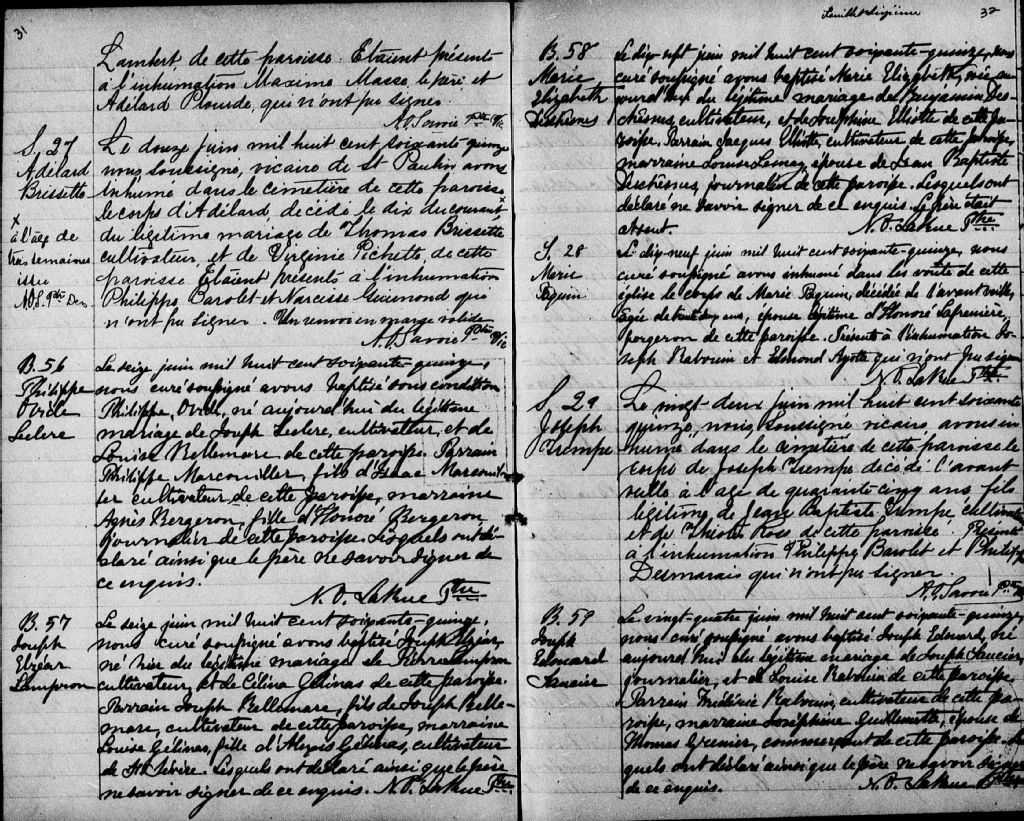 31
Lambert, de cette paroisse. Etaient présents
à l'inhumation Maxime Masse le père et
Adélard Plourde, qui n'ont pu signer.
A. D. Savoie Ptre Vic
S. 27
Adélard
Brissette
x
à l'age de
trois semaines
issu
Le douze juin mil huit cent soixante quinze
nous soussigné, vicaire de St Paulin, avons
inhumé dans le cimetière de cette paroisse
le corps d'Adélard, décédé le dix du courant x
du légitime mariage de Thomas Brissette
cultivateur, et de Virginie Pichette, de cette
paroisse. Etaient présents à l'inhumation
Philippe Barolet et Narcisse Guimond qui
n'ont pu signer. Un renvoi en marge valide
A. D. Savoie Ptre Vic
B. 56
Philippe
Ovide
Leclerc
Le seize juin mil huit cent soixante quinze,
nous curé soussigné avons baptisé sous condition
Philippe, Ovide, né aujourd'hui du légitime
mariage de Joseph Leclerc, cultivateur, et de
Louise Bellemare de cette paroisse. Parrain
Philippe Marcouiller, fils d'Isaac Marcouil-
ler cultivateur de cette paroisse, marraine
Agnès Bergeron, fille d'Honoré Bergeron
journalier de cette paroisse. Lesquels ont dé-
claré ainsi que le père ne savoir signer de
ce enquis.
N. O. LaRue Ptre
B. 57
Joseph
Elzéar
Lampron
Le seize juin mil huit cent soixante-quinze,
nous curé soussigné avons baptisé Joseph Elzéar,
né hier du légitime mariage de Pierre Lampron
cultivateur, et de Célina Gélinas de cette paroisse.
Parrain Joseph Bellemare, fils de Joseph Belle-
mare, cultivateur de cette paroisse, marraine
Louise Gélinas, fille d'Alexis Gélinas, cultivateur
de St Sévère. Lesquels ont déclaré ainsi que le père
ne savoir signer de ce enquis. N. O. LaRue Ptre
Feuillet sixième
32
B. 58
Marie
Elizabeth
Deschesnes
Le dix sept juin mil huit cent soixante-quinze, nous
curé soussigné avons baptisé Marie Elizabeth, née au-
jourd'hui du légitime mariage de Benjamin Des-
chesnes, cultivateur, et de Joséphine Elliotte de cette pa-
roisse. Parrain Jacques Elliotte, cultivateur de cette paroisse,
marraine Louise Lemay, épouse de Jean Baptiste
Deschesnes, journalier de cette paroisse. Lesquels ont
déclaré ne savoir signer de ce enquis. Le père était
absent.
N. O. LaRue Ptre
S. 28
Marie
Paquin
Le dix neuf juin mil huit cent soixante-quinze, nous
curé soussigné avons inhumé dans les voûte de cette
église le corps de Marie Paquin, décédée de l'avant veille,
agée de ans, épouse légitime d'Honoré Lafrenière,
forgeron de cette paroisse. Présents à l'inhumation Jo-
seph Rabouin et Edmond Ayotte qui n'ont pu signer
N. O. LaRue Ptre
S. 29
Joseph
Trempe
Le vingt deux juin mil huit cent soixante
quinze, nous, soussigné vicaire, avons in
humé dans le cimetière de cette paroisse le
corps de Joseph Trempe décédé l'avant
veille à l'age de quarante cinq ans, fils
légitime de Jean Baptiste Trempe, cultivateur
et de Ross de cette paroisse. Présents
à l'inhumation Philippe Barolet et Philippe
Desmarais qui n'ont pu signer.
A. D. Savoie Ptre Vic
B. 59
Joseph
Edouard
Saucier
Le vingt-quatre juin mil huit cent soixante-quinze,
nous curé soussigné avons baptisé Joseph Edouard, né
aujourd'hui du légitime mariage de Joseph Saucier,
journalier, et de Louise Rabouin de cette paroisse.
Parrain Frédéric Rabouin, cultivateur de cette pa-
roisse, marraine Joséphine Guillemette, épouse de
Thomas Grenier, commerçant de cette paroisse.
quels ont déclaré ainsi que le père ne savoir signer
de ce enquis.
N. O. LaRue Ptre